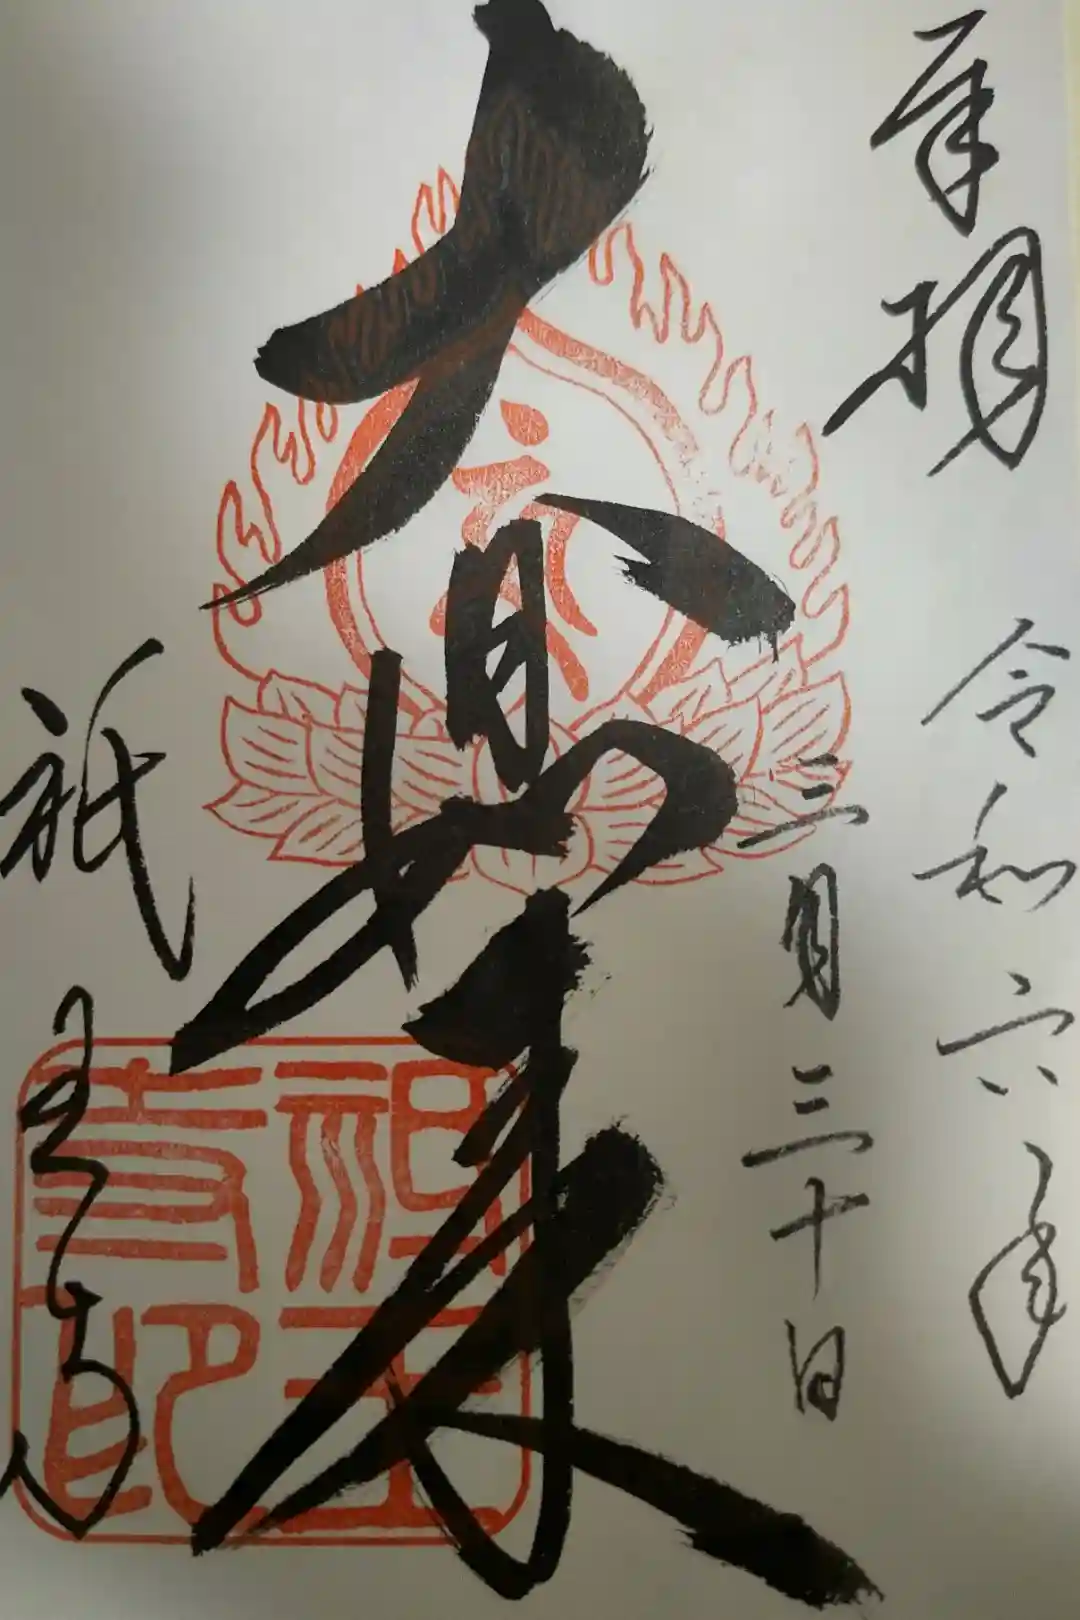 奉拝
令和六年
三月三十日
大日如来
祇王寺
祇王
寺印